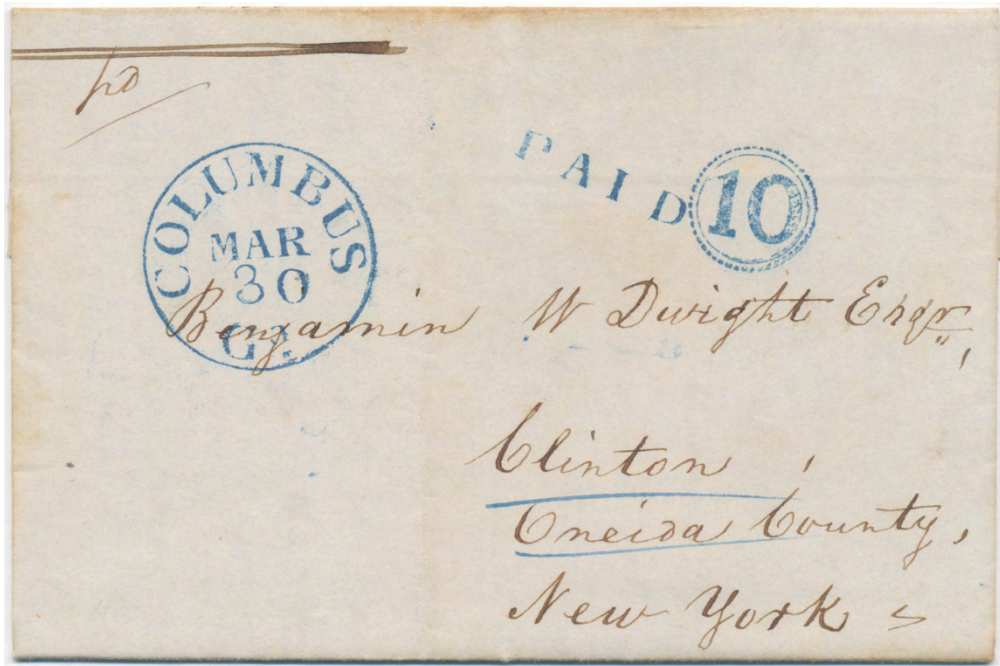 pd
PAID 10
COLUMBUS
MAR
30
Ga.
Benjamin W Dwight Esqr,
Clinton,
Oneida County,
New York